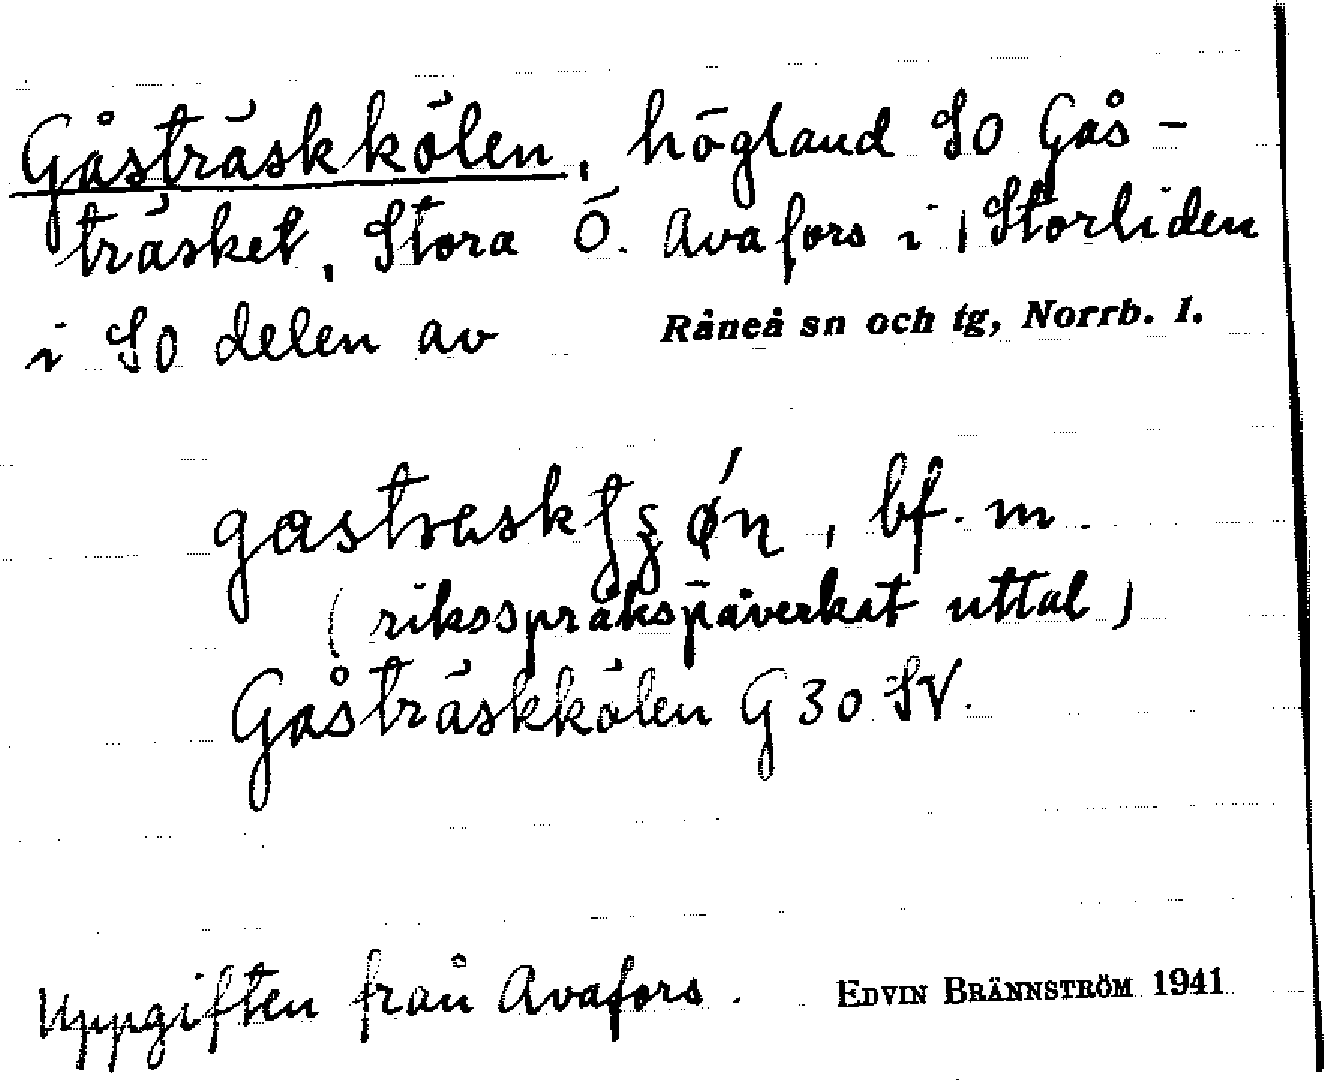 Gåsträskkölen, högland SO Gås-
träsket, Stora Ö. Avafors i Storliden
i SO delen av Råneå sn och tg, Norrb. l.
bf. m.
(riksspråkspåverkat uttal)
Gåsträskkölen G 30 SV.
Uppgiften från Avafors. EDVIN BRÄNNSTRÖM 1941